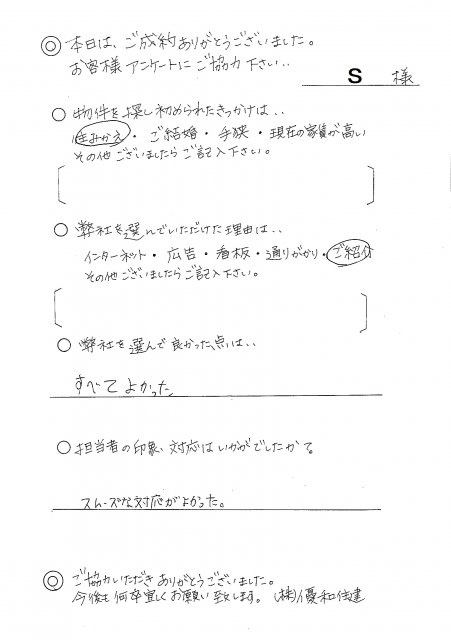 ◎ 本日は、ご成約ありがとうございました。
お客様アンケートにご協力下さい‥
S 様
○ 物件を探し初められたきっかけは‥
住みかえ・ご結婚・手狭・現在の家賃が高い
その他ございましたらご記入下さい。
○ 弊社を選んでいただけた理由は‥
インターネット・広告・看板・通りがかり・ご紹介
その他ございましたらご記入下さい。
○ 弊社を選んで良かった点は‥
すべてよかった。
○ 担当者の印象、対応はいかがでしたか?
スムーズな対応がよかった。
◎ ご協力いただきありがとうございました。
今後も何卒宜しくお願い致します。(株)優和住建